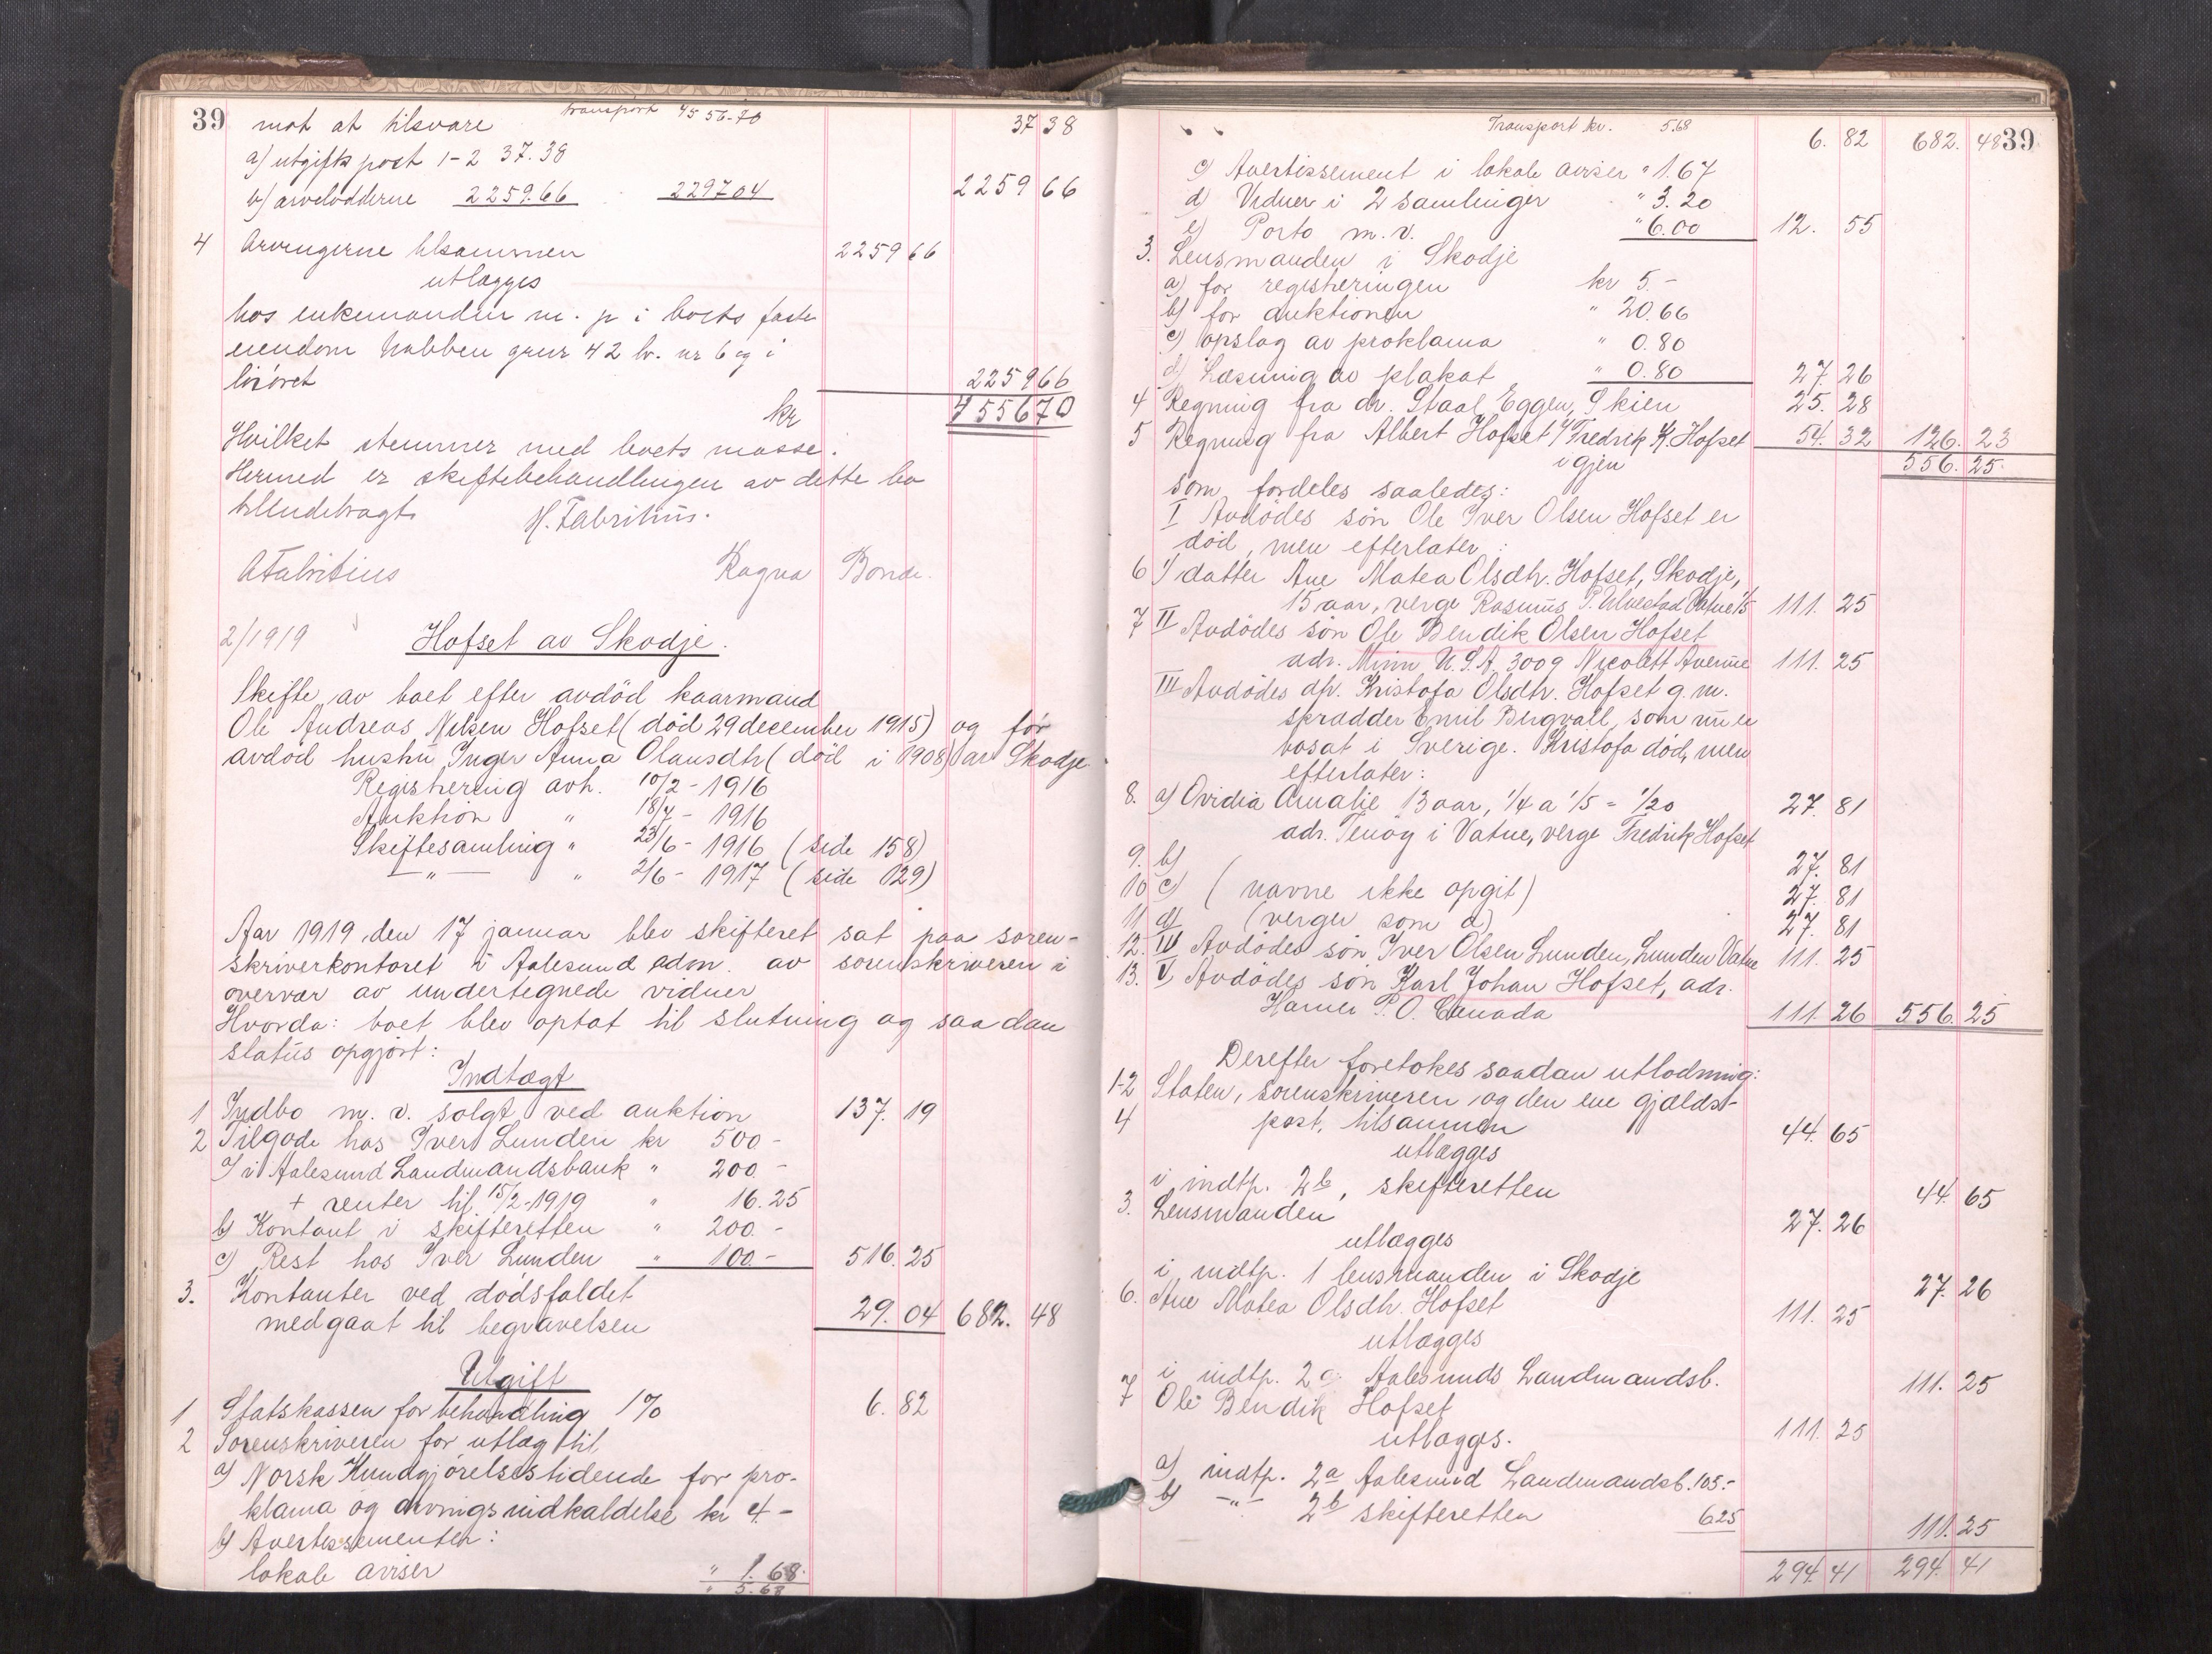 39 transport 4556-70
mot at tilsvare 37 38
a) utgiftspost 1-2 37.38
b) arvelodderne 2259.66 2297 04 2259 66
4 Arvingerne tilsammen 2259 66
utlægges
hos enkemanden m. p i boets faste
eiendom Nabben gnr 42 br. nr 6 og i
løsøret 2259 66
kr 4556 70
Hvilket stemmer med boets masse.
Hermed er skiftebehandlingen av dette bo
tilendebragt H. Fabritius.
A Fabritius Ragna Bonde.
2/1919 Hofset av Skodje.
Skifte av boet efter avdød kaarmand
Ole Andreas Nilsen Hofset (død 29 december 1915) og før
avdød hustru Inger Anna Olausdtr (død i 1908) av Skodje
Registrering avh. 10/2 - 1916
Auktion " 18/4 - 1916
Skiftesamling " 23/6 - 1916 (side 158)
— " — " 2/6 - 1917 (side 129)
Aar 1919 den 17 januar blev skifteret sat paa soren-
skriverkontoret i Aalesund adm. av sorenskriveren i
overvær av undertegnede vidner
Hvorda: boet blev optat til slutning og saadan
status opgjort:
Indtægt
1 Indbo m. v. solgt ved auktion 137. 19
2 Tilgode hos Iver Lunden kr 500 -
a) i Aalesund Landmandsbank " 200 -
+ renter til 15/2-1919 " 16.25
b) Kontant i skifteretten " 200. -
c) Rest hos Iver Lunden " 100. - 516. 25
3. Kontanter ved dødsfaldet
medgaat til begravelsen 29. 04 682. 48
Utgift
1 Statskassen for behandling 1% 6. 82
2 Sorenskriveren for utlæg til
a) Norsk Kundgjørelsestidende for pro-
klama og arvingsindkaldelse kr 4 -
b) Avertissementer:
lokale aviser " 1.68
" 5.68
Transport kr. 5.68 6. 82 682. 48 39
c) Avertissement i lokale aviser " 1.67
d) Vidner i 2 samlinger " 3.20
e) Porto m. v. " 6.00 12. 55
3. Lensmanden i Skodje
a) for registreringen kr 5. -
b) for auktionen " 20.66
c) opslag av proklama " 0.80
d) Læsning av plakat " 0.80 27. 26
4 Regning fra dr. Staal Eggen, Skien 25. 28
5 Regning fra Albert Hofset / Fredrik K. Hofset 54. 32 126. 23
igjen 556. 25
som fordeles saaledes:
I Avdødes søn Ole Iver Olsen Hofset er
død, men efterlater:
6 1 datter Ane Matea Olsdtr. Hofset, Skodje,
15 aar, verge Rasmus P. Ulvestad Vatne 1/5 111. 25
7 II Avdødes søn Ole Bendik Olsen Hofset
adr. Minn U.S.A. 3009 Nicolett Avenue 111. 25
III Avdødes dtr. Kristofa Olsdtr. Hofset g. m.
skrædder Emil Bergvall, som nu er
bosat i Sverige. Kristofa død, men
efterlater:
8. a) Ovidia Amalie 13 aar, 1/4 a 1/5 = 1/20 27. 81
adr. Tenøy i Vatne, verge Fredrik Hofset
9. b) 27. 81
10 c) (navne ikke opgit) 27. 81
11 d) (verger som a) 27. 81
12. IV Avdødes søn Iver Olsen Lunden, Lunden Vatne 111. 25
13. V Avdødes søn Karl Johan Hofset, adr.
P.O. Canada 111. 26 556. 25
Derefter foretokes saadan utlodning:
1-2 Staten, sorenskriveren og den ene gjælds-
4 post, tilsammen 44. 65
utlægges
i indtp. 2b, skifteretten 44. 65
3. Lensmanden 27. 26
utlægges
i indtp. 1 lensmanden i Skodje 27. 26
6. Ane Matea Olsdtr. Hofset 111. 25
utlægges
i indtp. 2a Aalesunds Landmandsb. 111. 25
7 Ole Bendik Hofset 111. 25
utlægges.
a) indtp. 2a Aalesund Landmandsb. 105.-
b) - " - 2b skifteretten 6.25
111. 25
294. 41 294. 41